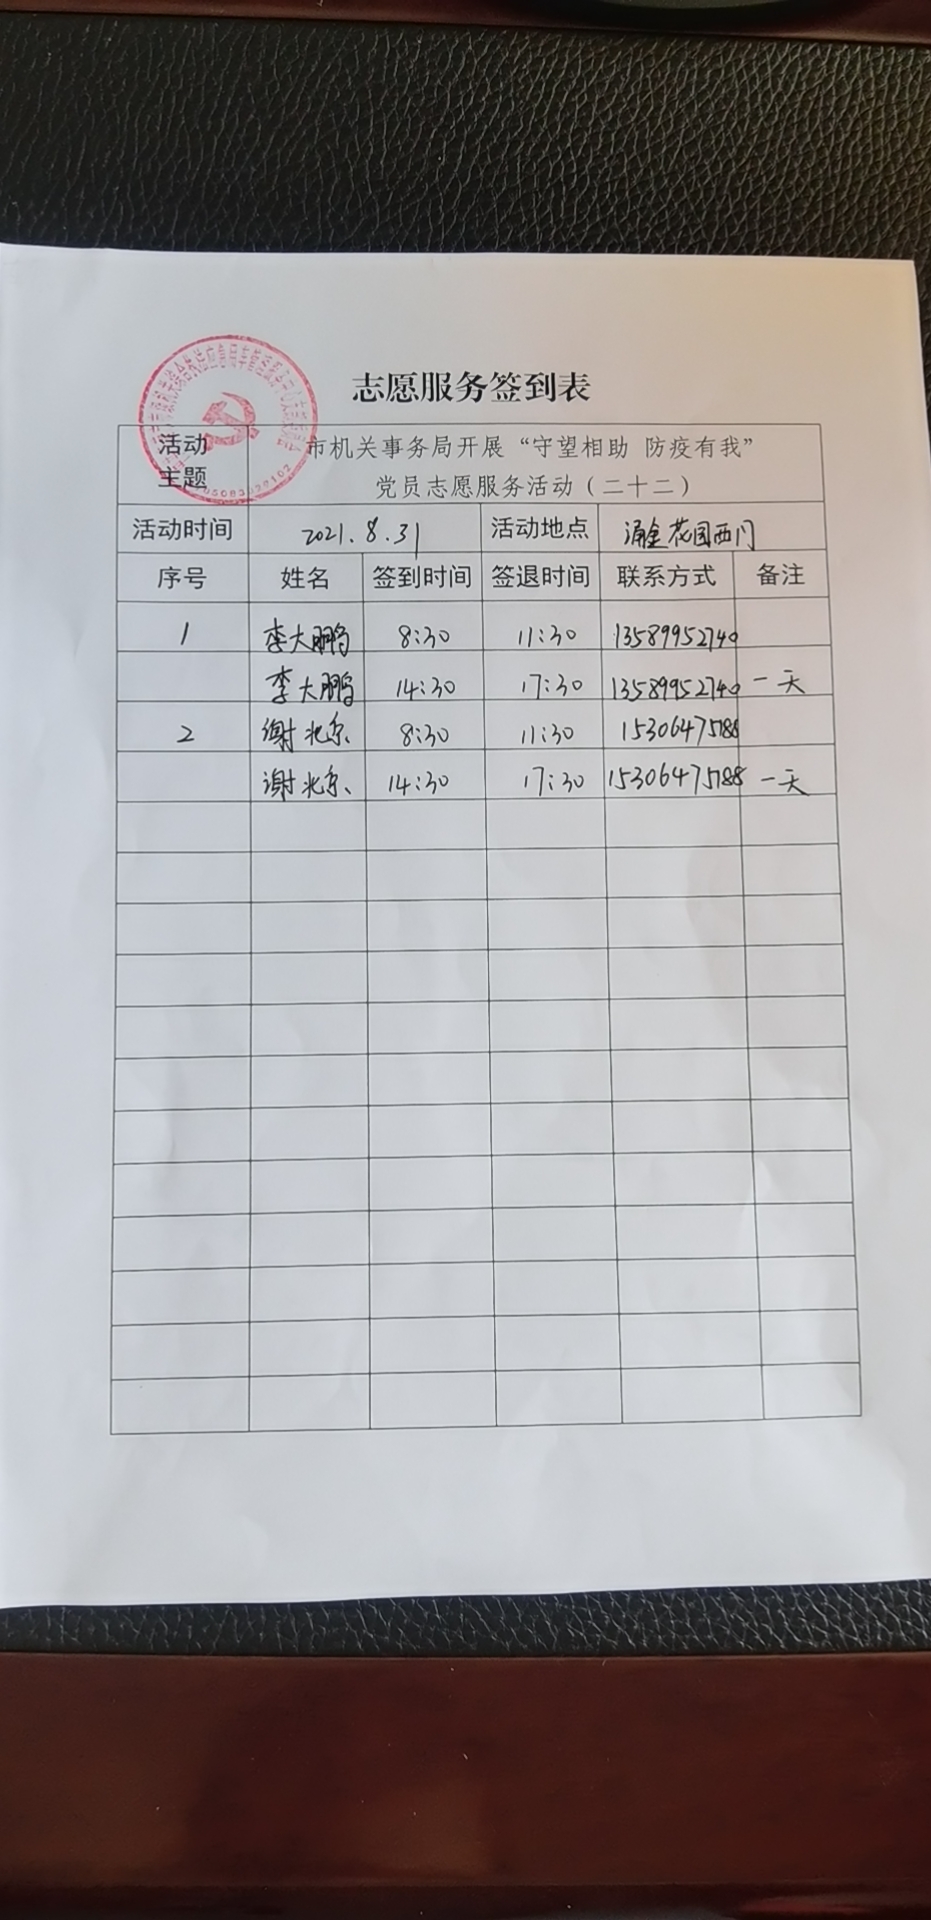 志愿服务签到表
活动主题 市机关事务局开展“守望相助 防疫有我”
党员志愿服务活动(二十二)
活动时间 2021.8.31 活动地点 涌金花园西门
序号 姓名 签到时间 签退时间 联系方式 备注
1 李大鹏 8:30 11:30 13589952740
李大鹏 14:30 17:30 13589952740 一天
2 谢兆京 8:30 11:30 15306475188
谢兆京 14:30 17:30 15306475188 一天